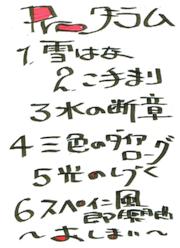 プログラム
1雪はな
2.こ手まり
3水の断章
4三色のダイア
ローグ
5光のしづく
6スペイン風
即興曲
～おしまい～